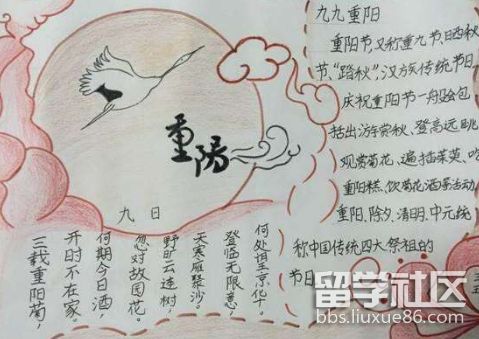 九九重阳
重阳节,又称重九节、晒秋
节、“踏秋”,汉族传统节日。
庆祝重阳节一般会包
括出游赏秋、登高远眺、
观赏菊花、遍插茱萸、吃
重阳糕、饮菊花酒等活动。
重阳、除夕、清明、中元统
称中国传统四大祭祖的
节日
重陽
九日
三载重阳菊,
开时不在家。
何期今日酒,
忽对故园花。
野旷云连树,
天寒雁聚沙。
登临无限意,
何处望京华。
留学社区
bbs.liuxue86.com